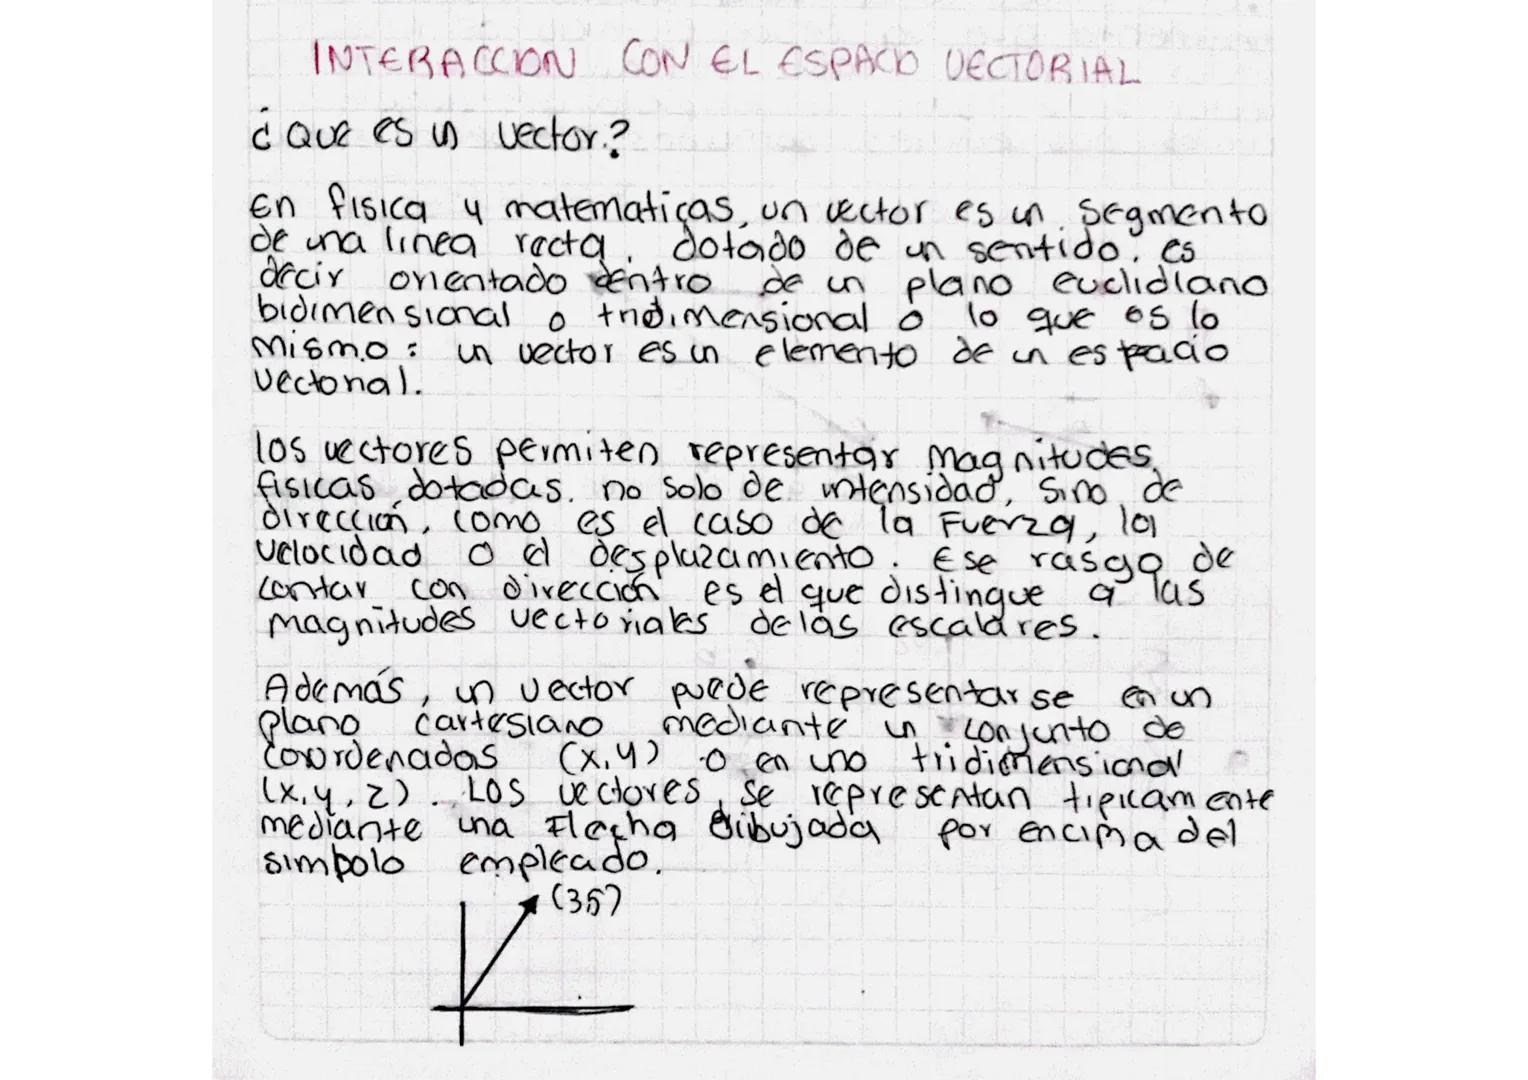 INTERACCION CON EL ESPACIO VECTORIAL
¿Que es un vector.?
En fisica y matematicas, un vector es un segmento
de una linea recta, dotado de un sentido, es
decir orientado dentro de un plano euclidiano
bidimensional o tridimensional o lo que es lo
mismo: un vector es un elemento de un espacio
vectorial.
los vectores permiten representar magnitudes
fisicas dotadas. no solo de intensidad, sino de
dirección, como es el caso de la Fuerza, la
velocidad o el desplazamiento. Ese rasgo de
contar con dirección es el que distingue a las
magnitudes vectoriales de las escalares.
Además, un vector puede representarse en un
plano cartesiano mediante un conjunto de
coordenadas (x,y) o en uno tridimensional
(x,y,z). Los vectores, se representan tipicamente
mediante una Flecha dibujada por encima del
simbolo empleado.
(35)